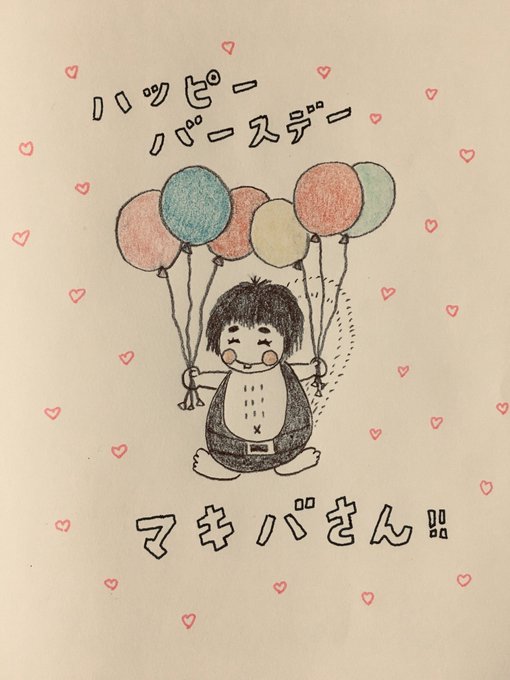 ハッピー
バースデー
マキバさん!!